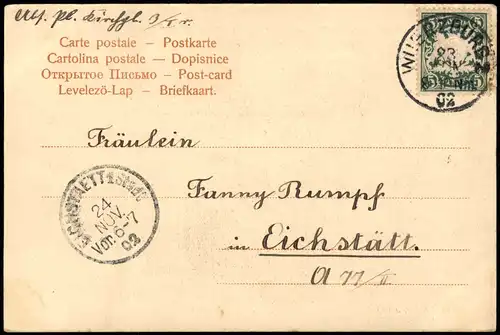 Abs. Pl. Kirchpl. 3/I r.
Carte postale – Postkarte
Cartolina postale – Dopisnice
Открытое Письмо – Post-card
Levelező-Lap – Briefkaart.
WÜRZBURG 2
23
NOV.
02
Fräulein
Fanny Rumpf
in Eichstätt.
A 77/II
EICHSTAETT 1 Stadt
24
NOV.
Vor. 6-7
02